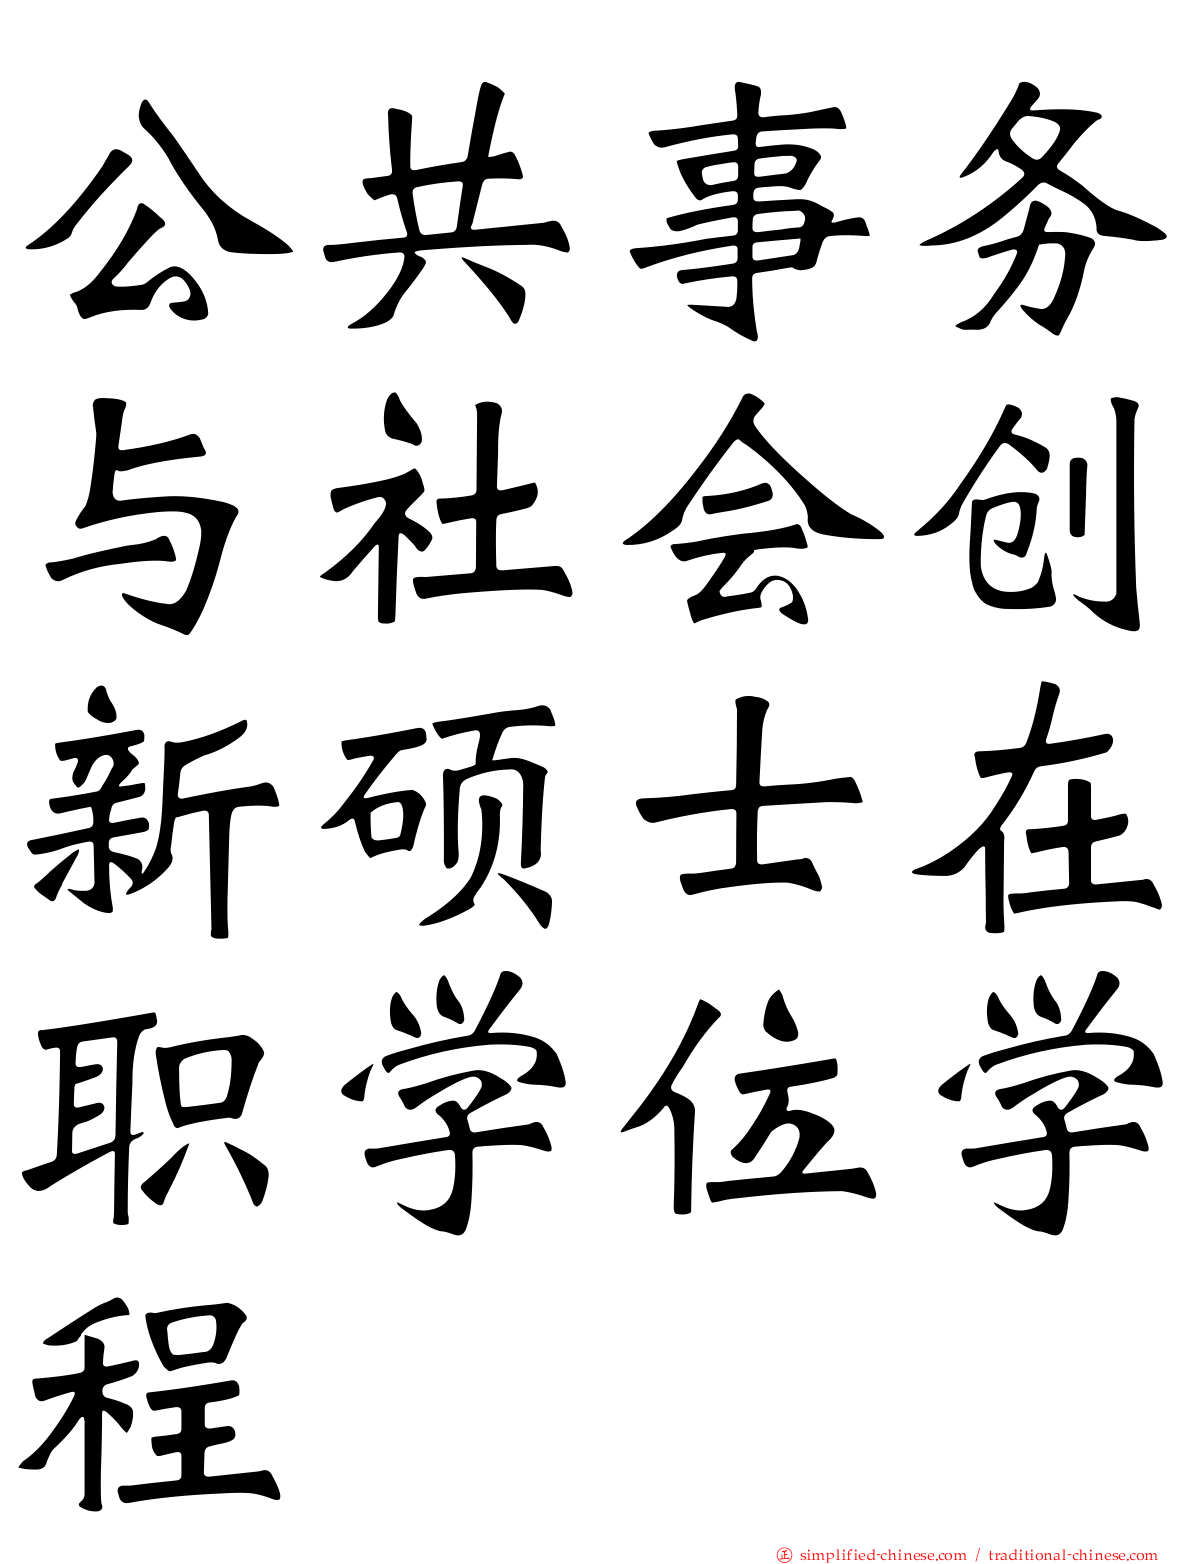 公共事务
与社会创
新硕士在
职学位学
程
㊣ simplified-chinese.com / traditional-chinese.com